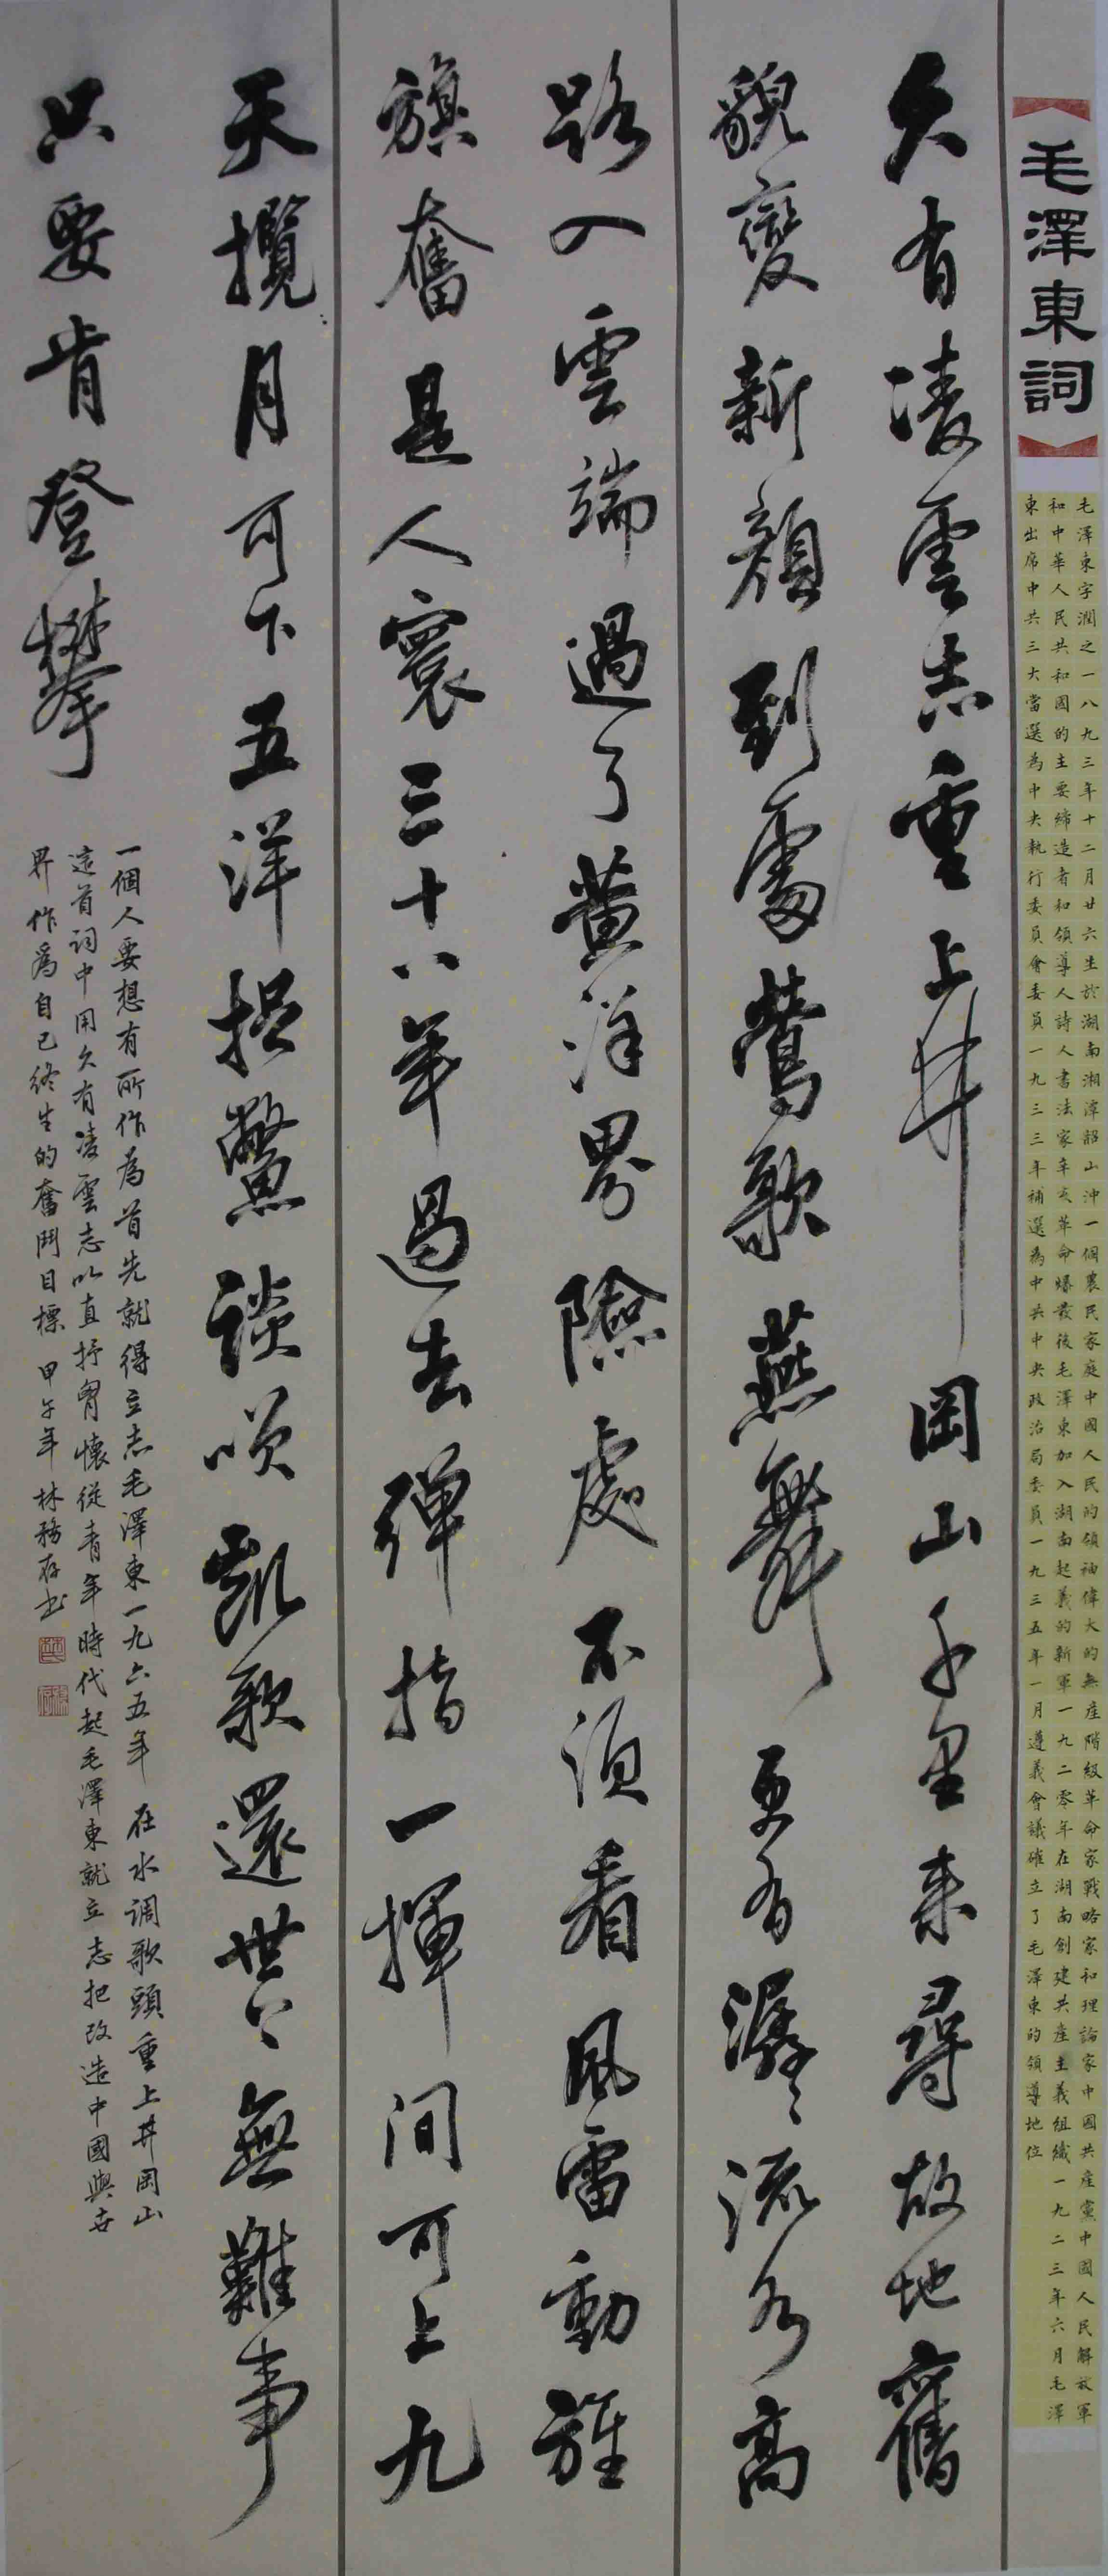 毛澤東詞
毛澤東字潤之一八九三年十二月廿六生於湖南湘潭韶山沖一個農民家庭中國人民的領袖偉大的無產階級革命家戰略家和理論家中國共產黨中國人民解放軍
和中華人民共和國的主要締造者和領導人詩人書法家辛亥革命爆發後毛澤東加入湖南起義的新軍一九二零年在湖南創建共產主義組織一九二三年六月毛澤
東出席中共三大當選為中央執行委員會委員一九三三年補選為中共中央政治局委員一九三五年一月遵義會議確立了毛澤東的領導地位
久有凌雲志重上井岡山千里来尋故地舊
貌變新顏到處鶯歌燕舞更有潺〻流水高
路入雲端過了黄洋界險處不須看風雷動旌
旗奮是人寰三十八年過去彈指一揮间可上九
天攬月可下五洋捉鱉談笑凱歌還世上無難事
只要肯登攀
一個人要想有所作為首先就得立志毛澤東一九六五年 在水调歌頭重上井岡山
這首词中用久有凌雲志以直抒胷懷從青年時代起毛澤東就立志把改造中國與世
界作爲自己終生的奮鬥目標 甲午年 林務存书